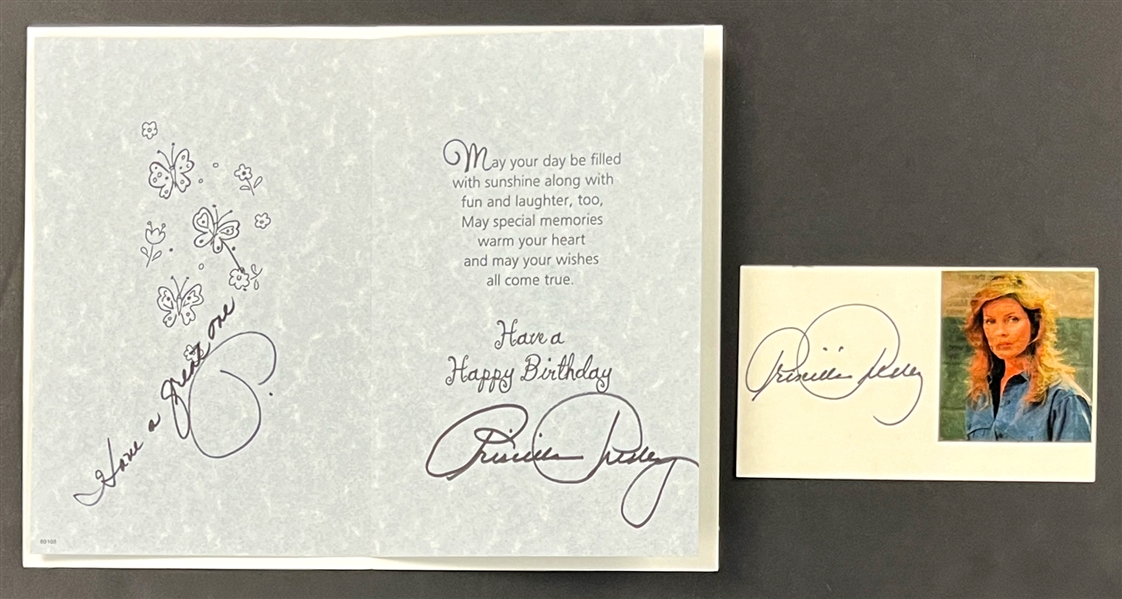 Have a great one
P.
60108
May your day be filled
with sunshine along with
fun and laughter, too,
May special memories
warm your heart
and may your wishes
all come true.
Have a
Happy Birthday
Priscilla Presley
Priscilla Presley